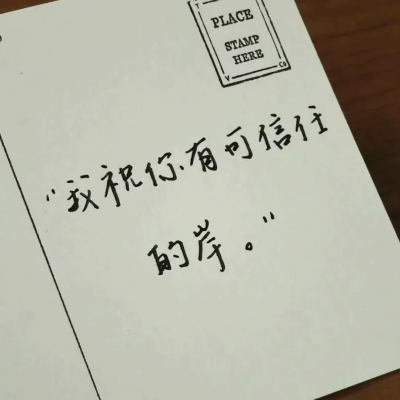 PLACE
STAMP
HERE
“我祝你有可信任
的岸。”